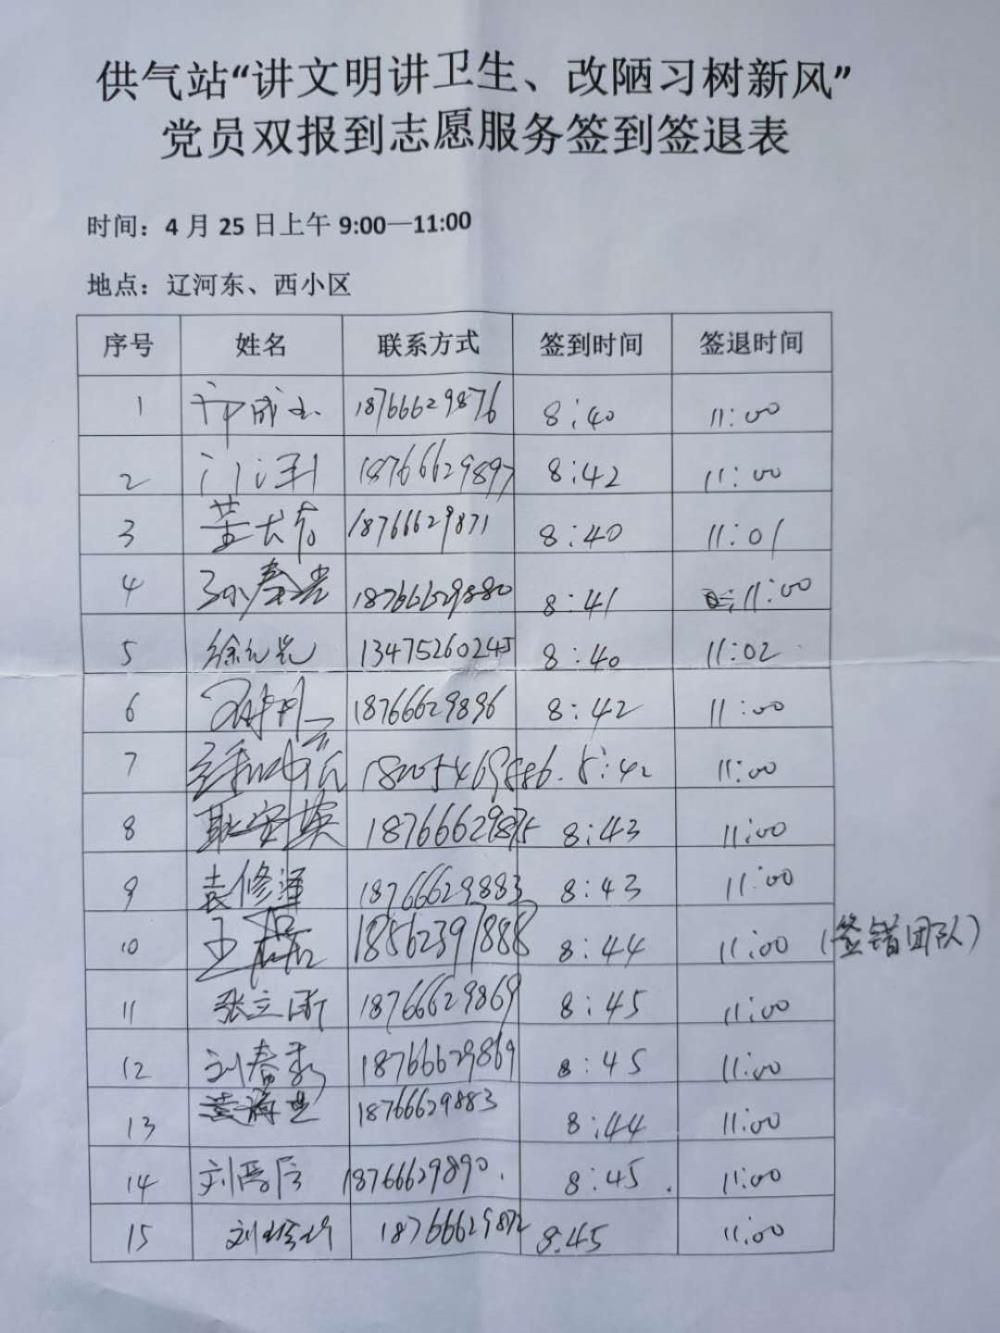 供气站“讲文明讲卫生、改陋习树新风”
党员双报到志愿服务签到签退表
时间：4 月 25 日上午 9:00—11:00
地点：辽河东、西小区
序号 姓名 联系方式 签到时间 签退时间
1 18766629876 8:40 11:00
2 18766629897 8:42 11:00
3 18766629871 8:40 11:01
4 孙秦岩 18766629880 8:41 11:00
5 徐元光 13475260245 8:40 11:02
6 18766629896 8:42 11:00
7 18005469886. 8:42 11:00
8 耿安英 18766629875 8:43 11:00
9 袁修泽 18766629883 8:43 11:00
10 王 18562391888 8:44 11:00 (签错团队)
11 张立 18766629869 8:45 11:00
12 刘春 18766629869 8:45 11:00
13 18766629883 8:44 11:00
14 刘 18766629890. 8:45. 11:00
15 刘 18766629872 8:45 11:00